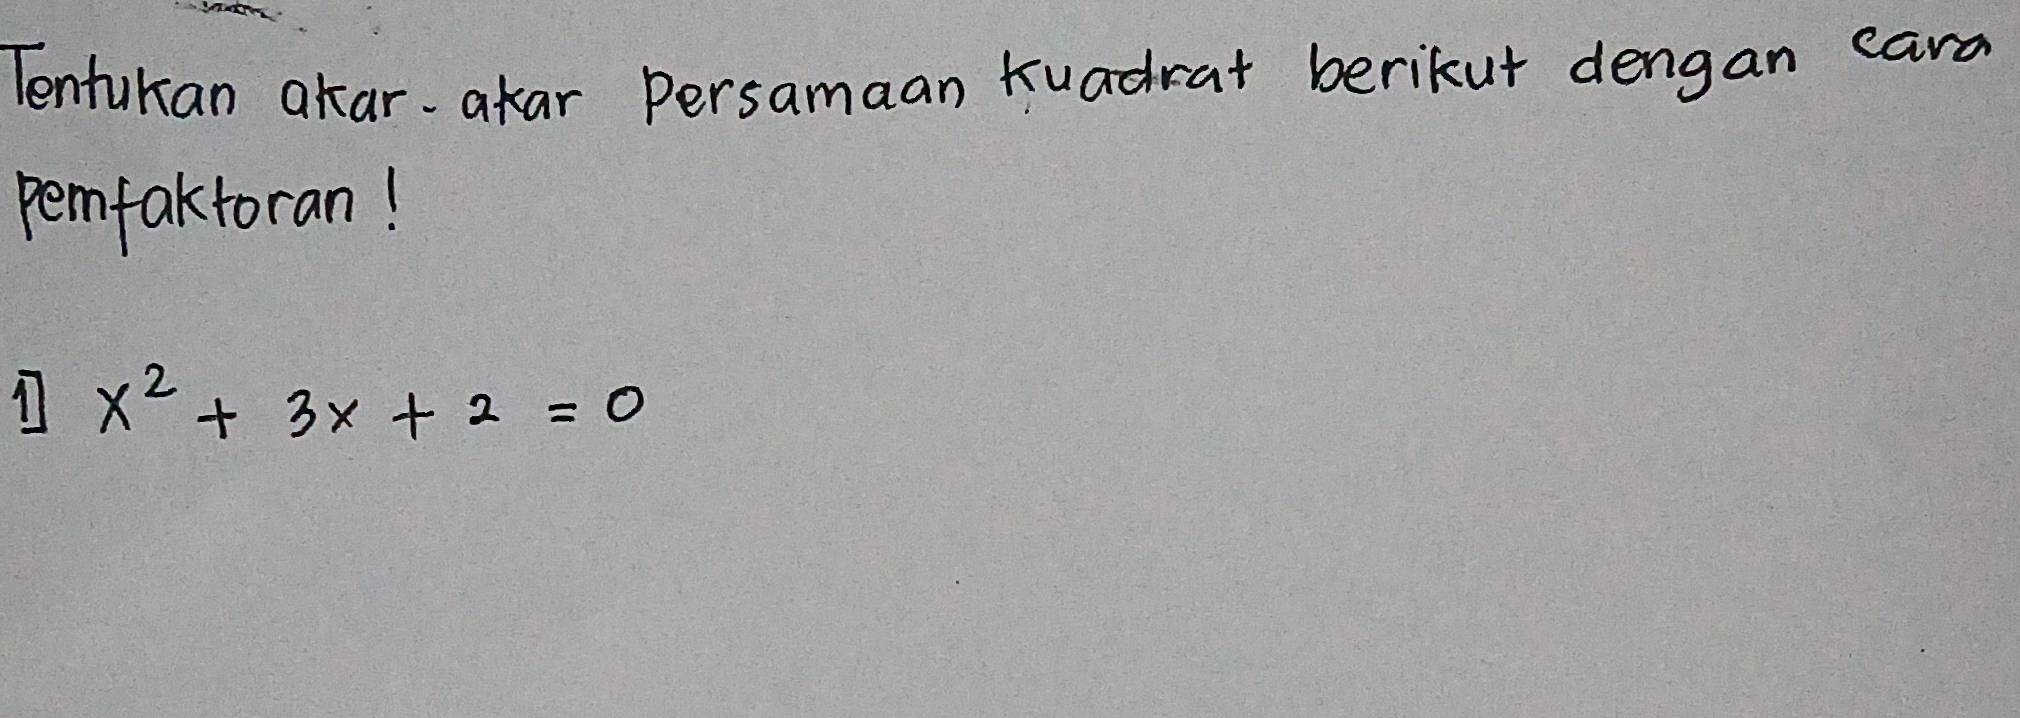 Tentukan akar-akar persamaan kuadrat berikut dengan cara
pemfaktoran!
1] x² + 3x + 2 = 0